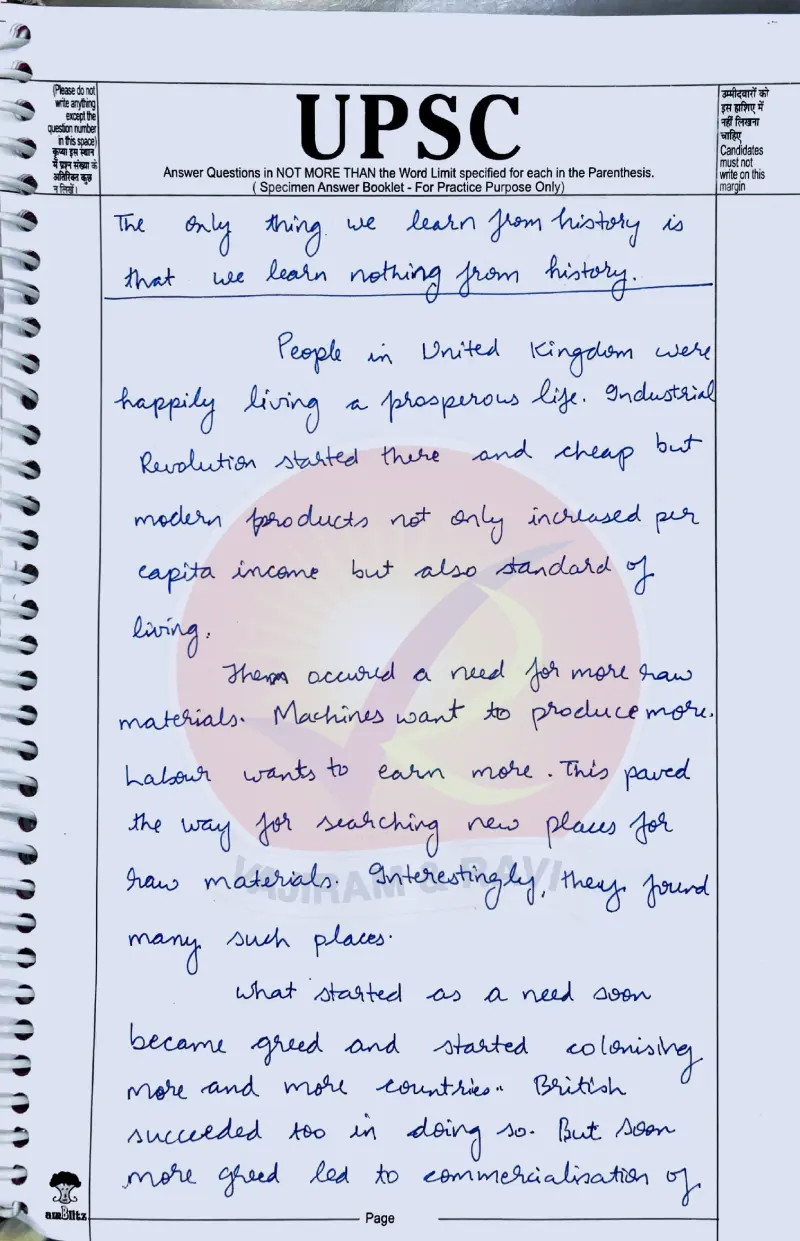 (Please do not
write anything
except the
question number
in this space)
कृपया इस स्थान
में प्रश्न संख्या के
अतिरिक्त कुछ
न लिखें।
UPSC
Answer Questions in NOT MORE THAN the Word Limit specified for each in the Parenthesis.
( Specimen Answer Booklet - For Practice Purpose Only)
उम्मीदवारों को
इस हाशिए में
नहीं लिखना
चाहिए
Candidates
must not
write on this
margin
The only thing we learn from history is
that we learn nothing from history.
People in United Kingdom were
happily living a prosperous life. Industrial
Revolution started there and cheap but
modern products not only increased per
capita income but also standard of
living.
occured a need for more raw
materials. Machines want to produce more.
Labour wants to earn more. This paved
the way for searching new places for
raw materials. Interestingly, they found
many such places.
What started as a need soon
became greed and started colonising
more and more countries. British
succeeded too in doing so. But soon
more greed led to commercialisation of
VAJIRAM & RAVI
amBlitz
Page